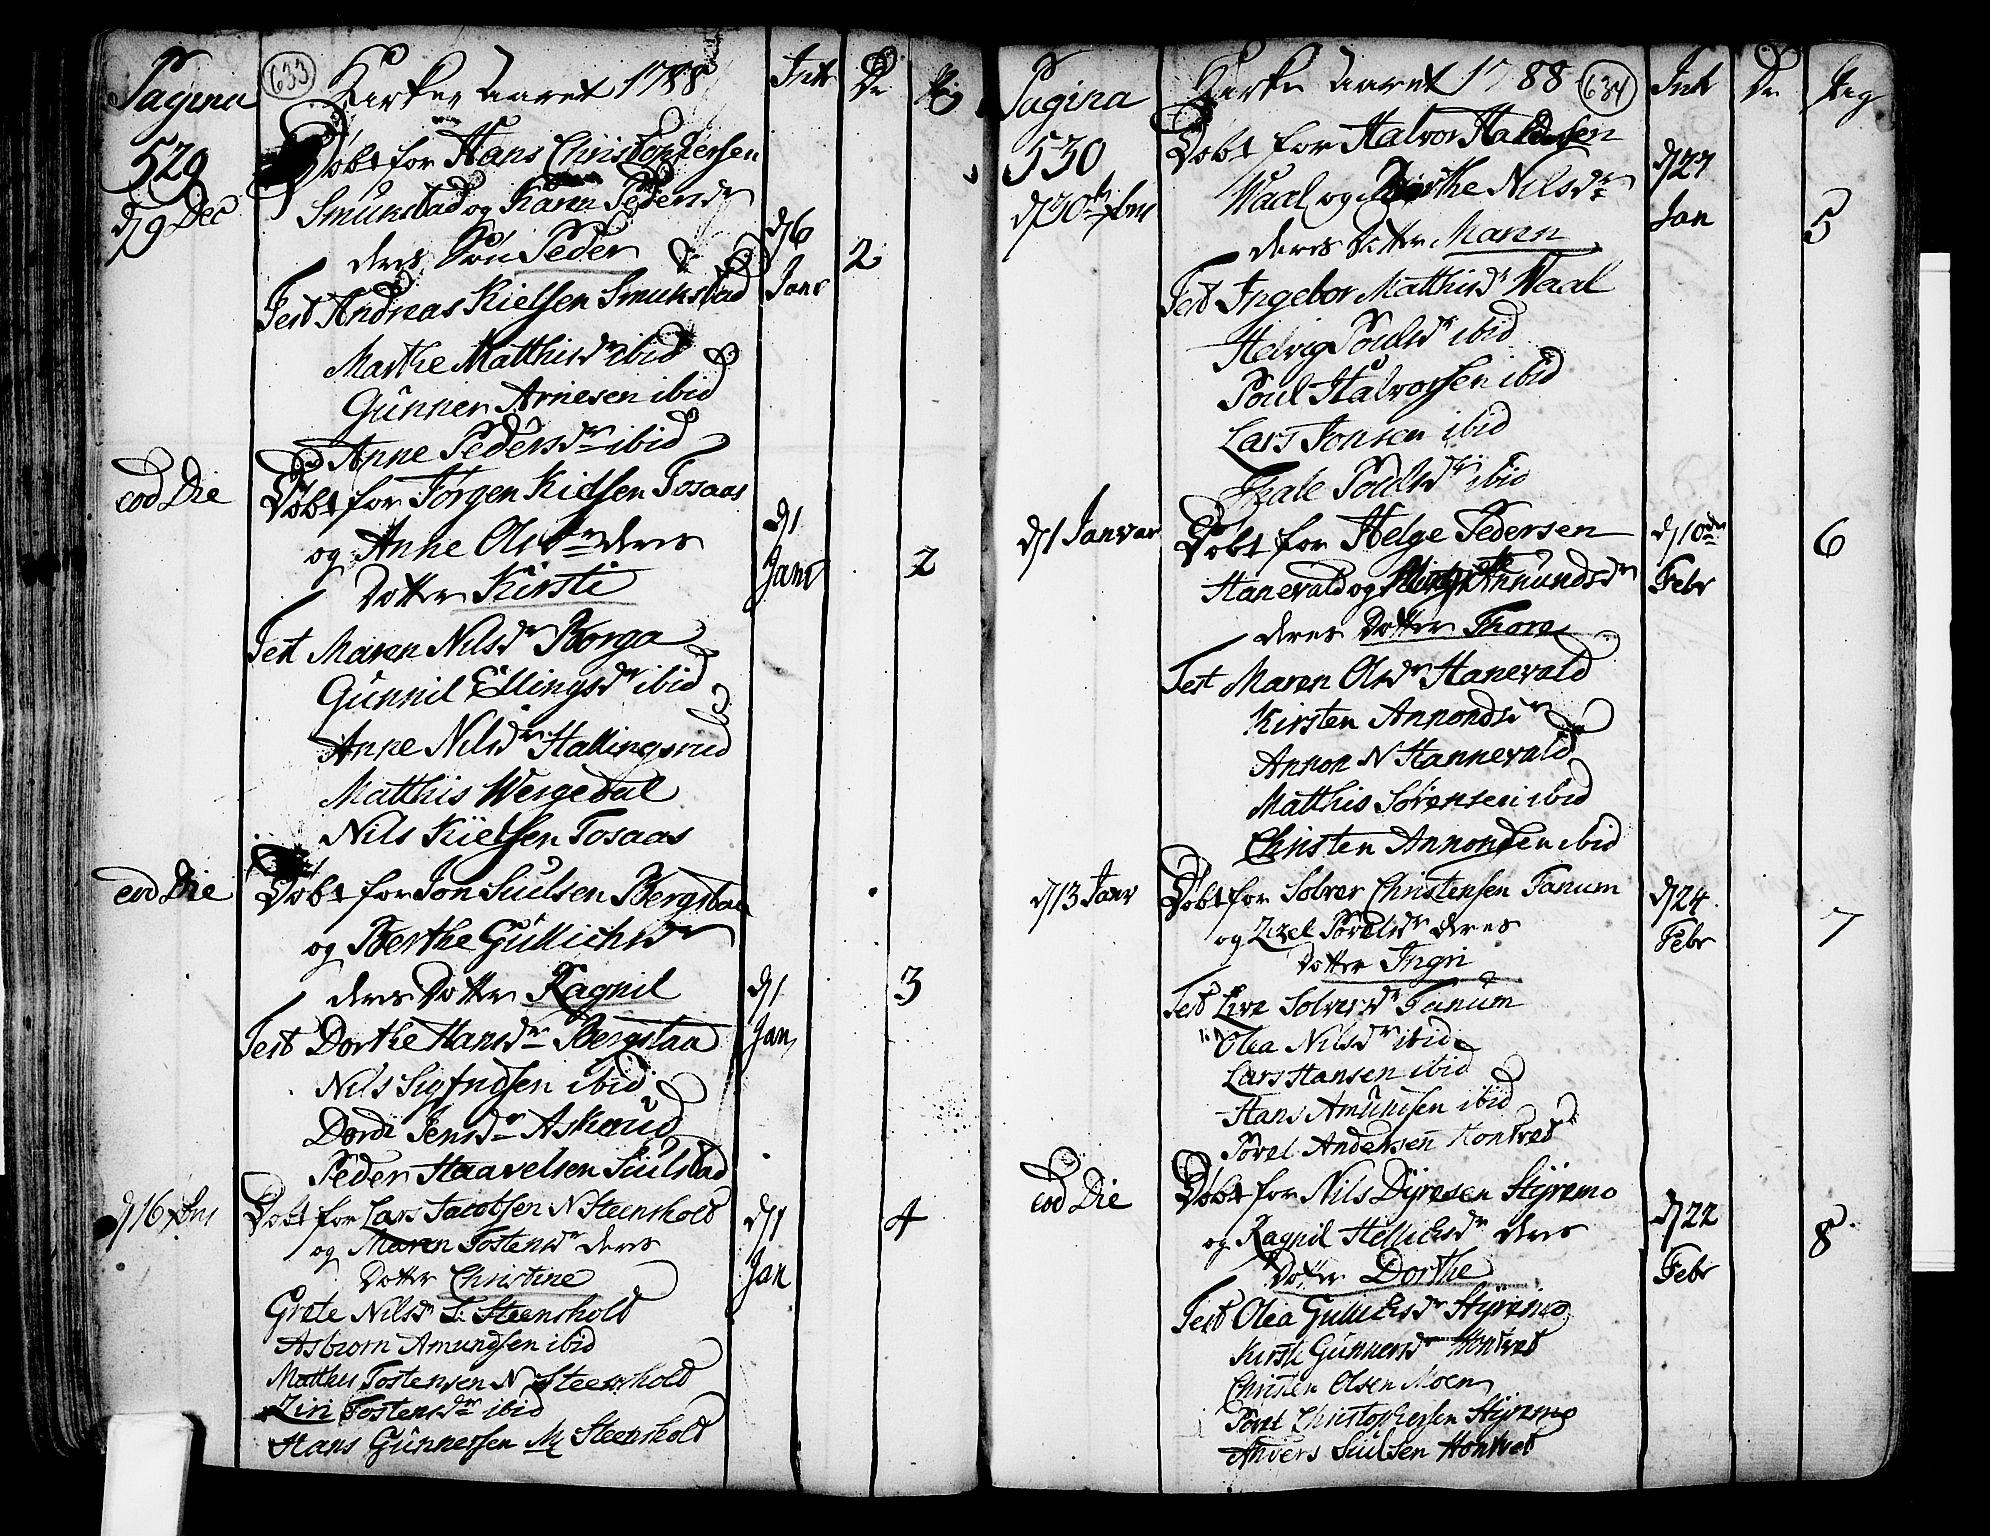 Pagina
529
633
Kirke Aaret 1788
Intr
Dr
Pig
d 9 Dec
Døbt for Hans Christophersen
Smukstad og Karen Pedersdr
deres Søn Peder
d 6
Janr
2
Test Andreas Kielsen Smukstad
Marthe Matthisdr ibid
Gunner Arnesen ibid
Anne Pedersdr ibid
eod Die
Døbt for Jørgen Kielsen Tosaas
og Anne Olsdr deres
Dotter Kirsti
d 1
Janr
2
Test Maren Nilsdr Borga
Gunnil Ellingsdr ibid
Anne Nilsdr Hallingsrud
Matthis Wergedal
Nils Kielsen Tosaas
eod Die
Døbt for Jon Siulsen Bergstaa
og Berthe Gullichsdr
deres Dotter Ragnil
d 1
Jan
3
Test Dorthe Hansdr Bergstaa
Nils Sigfridsen ibid
Dordi Jensdr Askerud
Peder Haavelsen Siulstad
d 16 xbris
Døbt for Lars Jacobsen N Steenshold
og Maren Tostensdr deres
Dotter Christine
d 1
Jan
4
Grete Nilsdr S. Steenshold
Asbiorn Amundsen ibid
Matthis Tostensen N Steenshold
Ziri Tostensdr ibid
Hans Gunnersen M Steenshold
Pagina
530
Kirke Aaret 1788
634
Intr
Dr
Pig
d 30 xbris
Døbt for Halvor Haldorsen
Waal og Dorthe Nilsdr
deres Dotter Maren
d 27
Jan
5
Test Ingebor Matthisdr Waal
Helvig Poulsdr ibid
Poul Halvorsen ibid
Lars Jonsen ibid
Thale Poulsdr ibid
d 1 Januar
Døbt for Helge Pedersen
Hanevald og Annundsdr
deres Dotter Thore
d 10de
Febr
6
Test Maren Olsdr Hanevald
Kirsten Annondsdr
Annon N Hannevald
Matthis Sørensen ibid
Christen Annondsen ibid
d 13 Janr
Døbt for Solver Christensen Fanum
og Zizel Povelsdr deres
Dotter Ingri
d 24
Febr
7
Test Live Solversdr Fanum
Olea Nilsdr ibid
Lars Hansen ibid
Hans Amundsen ibid
Povel Andersen Hontvet
eod Die
Døbt for Nils Dyresen Styremo
og Ragnil Helliksdr deres
Dotter Dorthe
d 22
Febr
8
Test Olea Gulliksdr Styremo
Kirsti Gunnersdr Hontvet
Christen Olsen Moen
Povel Christophersen Styremo
Anders Siulsen Hontvet